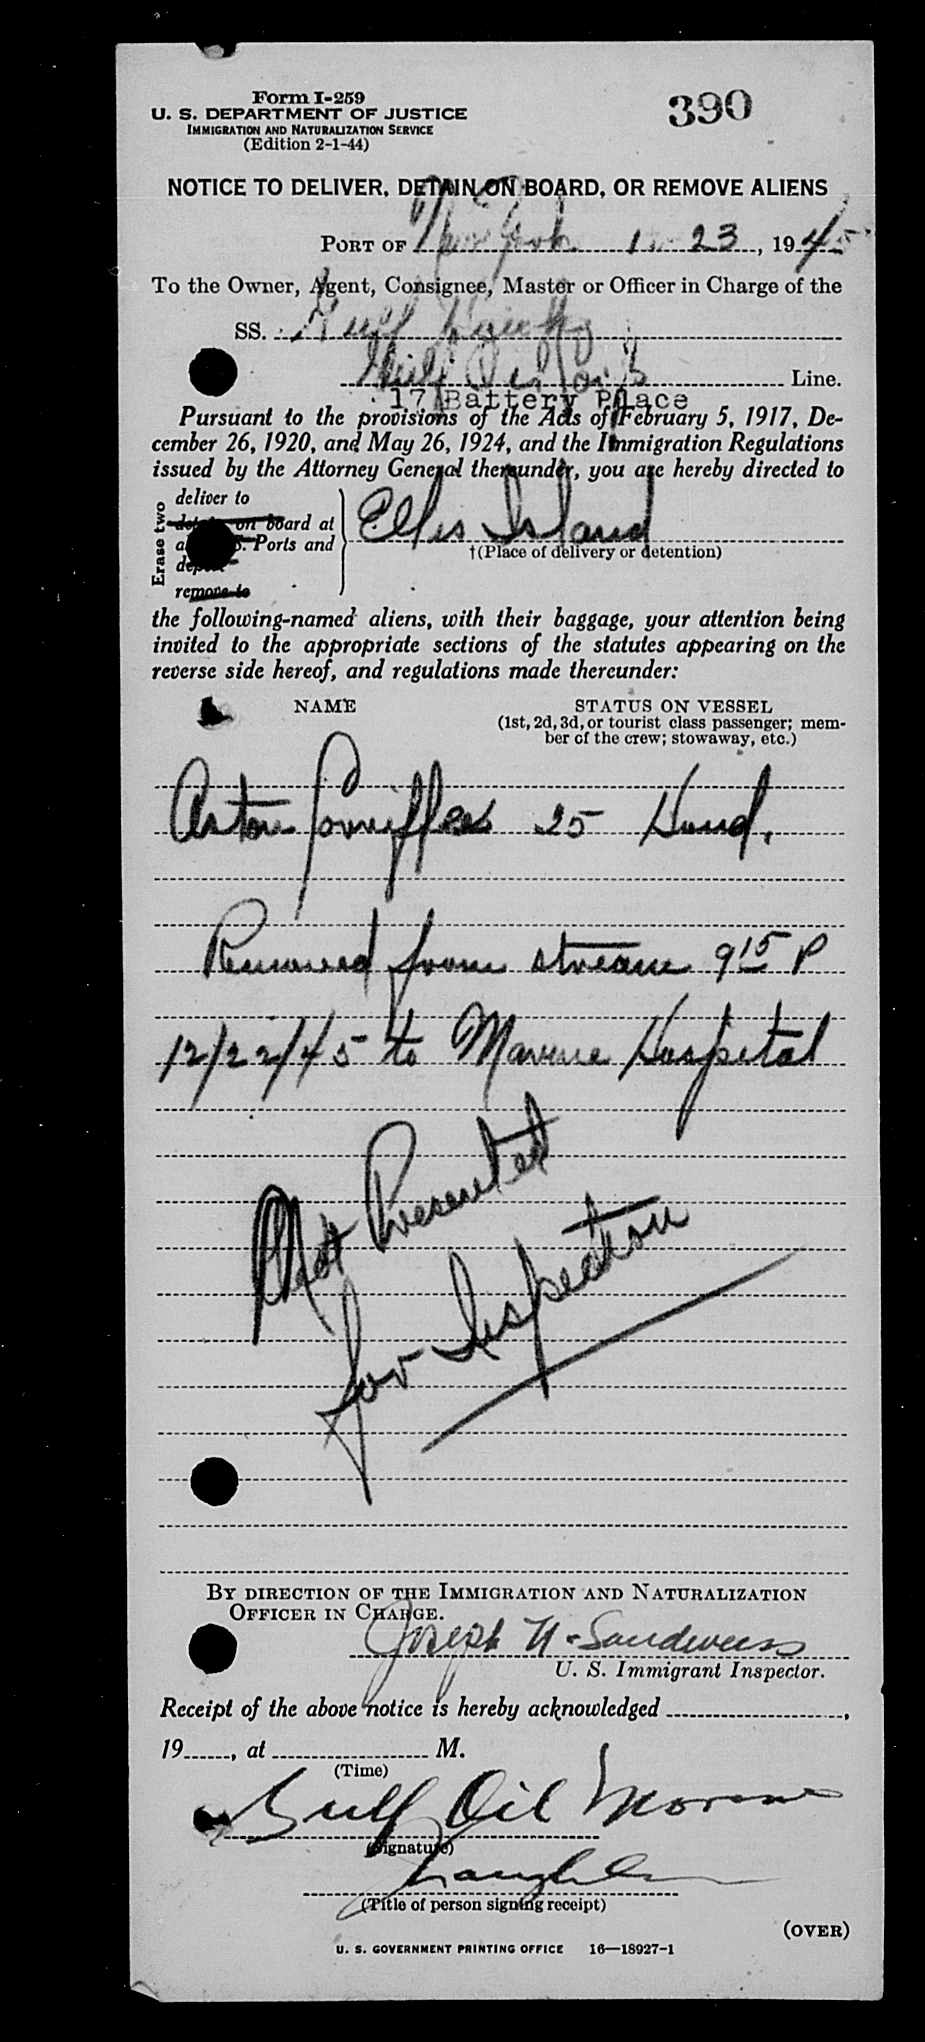 Form I-259
390
U. S. DEPARTMENT OF JUSTICE
IMMIGRATION AND NATURALIZATION SERVICE
(Edition 2-1-44)
NOTICE TO DELIVER, DETAIN ON BOARD, OR REMOVE ALIENS
PORT OF New York 23, 1945
To the Owner, Agent, Consignee, Master or Officer in Charge of the
SS. Gulf
Gulf Oil Line.
17 Battery Place
Pursuant to the provisions of the Acts of February 5, 1917, De-
cember 26, 1920, and May 26, 1924, and the Immigration Regulations
issued by the Attorney General thereunder, you are hereby directed to
Erase two
deliver to
detain on board at
S. Ports and
remove to
Ellis Island
†(Place of delivery or detention)
the following-named aliens, with their baggage, your attention being
invited to the appropriate sections of the statutes appearing on the
reverse side hereof, and regulations made thereunder:
NAME STATUS ON VESSEL
(1st, 2d, 3d, or tourist class passenger; mem-
ber of the crew; stowaway, etc.)
25 Hond.
Removed from stream 9 15 P
12/22/45 to Marine Hospital
Not Presented
for Inspection
BY DIRECTION OF THE IMMIGRATION AND NATURALIZATION
OFFICER IN CHARGE.
Joseph N. Sandweiss
U. S. Immigrant Inspector.
Receipt of the above notice is hereby acknowledged ,
19 , at M.
(Time)
Gulf Oil
(Signature)
(Title of person signing receipt)
(OVER)
U. S. GOVERNMENT PRINTING OFFICE 16—18927-1